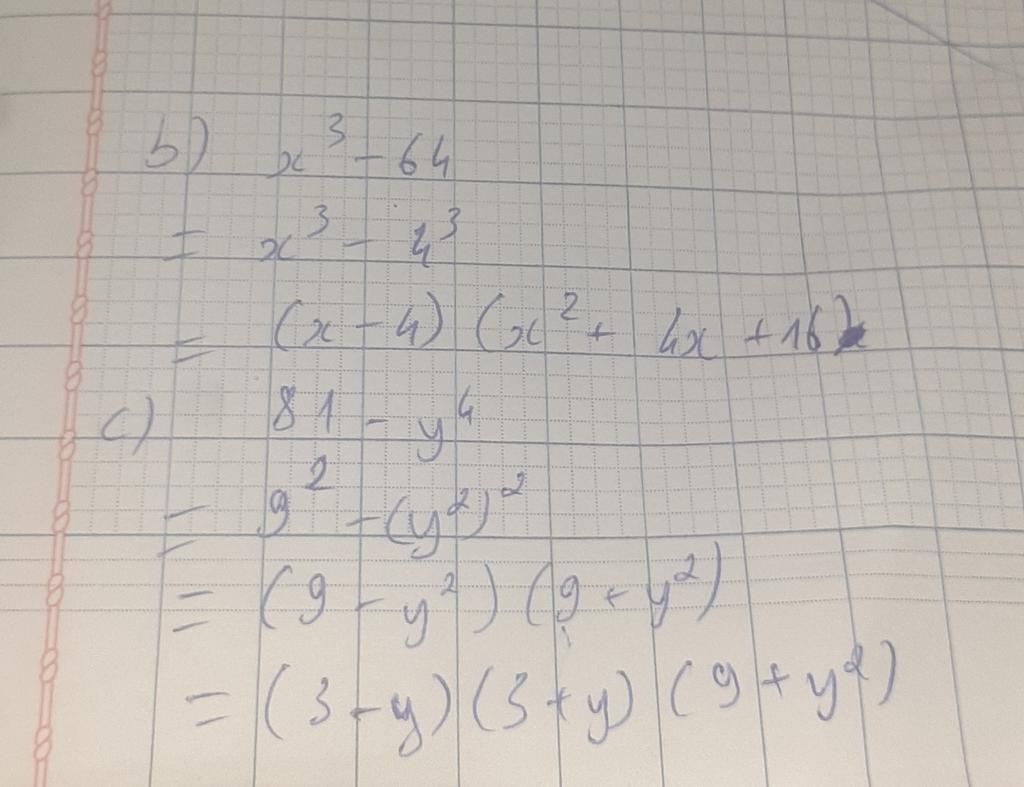 b) x³ - 64
= x³ - 4³
= (x - 4) (x² + 4x + 16)
c) 81 - y⁴
= 9² - (y²)²
= (9 - y²) (9 + y²)
= (3 - y) (3 + y) (9 + y²)